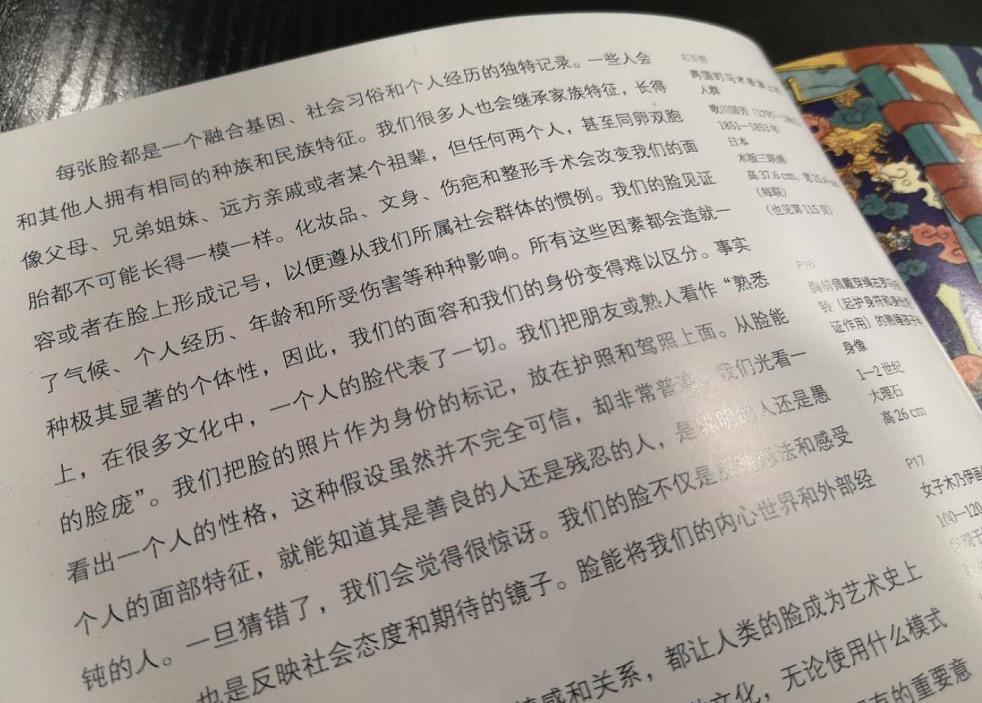 每张脸都是一个融合基因、社会习俗和个人经历的独特记录。一些人会
和其他人拥有相同的种族和民族特征。我们很多人也会继承家族特征，长得
像父母、兄弟姐妹、远方亲戚或者某个祖辈，但任何两个人，甚至同卵双胞
胎都不可能长得一模一样。化妆品、文身、伤疤和整形手术会改变我们的面
容或者在脸上形成记号，以便遵从我们所属社会群体的惯例。我们的脸见证
了气候、个人经历、年龄和所受伤害等种种影响。所有这些因素都会造就一
种极其显著的个体性，因此，我们的面容和我们的身份变得难以区分。事实
上，在很多文化中，一个人的脸代表了一切。我们把朋友或熟人看作“熟悉
的脸庞”。我们把脸的照片作为身份的标记，放在护照和驾照上面。从脸能
看出一个人的性格，这种假设虽然并不完全可信，却非常普遍。我们光看一
个人的面部特征，就能知道其是善良的人还是残忍的人，是聪明的人还是愚
钝的人。一旦猜错了，我们会觉得很惊讶。我们的脸不仅是 和感受
也是反映社会态度和期待的镜子。脸能将我们的内心世界和外部经
情感和关系，都让人类的脸成为艺术史上
文化，无论使用什么模式
有的重要意
人群
1851—1853年
日本
木版三联画
高 37.6 cm，宽
（每联）
（也见第 115 页）
P16
铃（起护身符和身份
证作用）的熟睡孩子
身像
1—2 世纪
大理石
高 26 cm
P17
女子木乃伊画
100—120